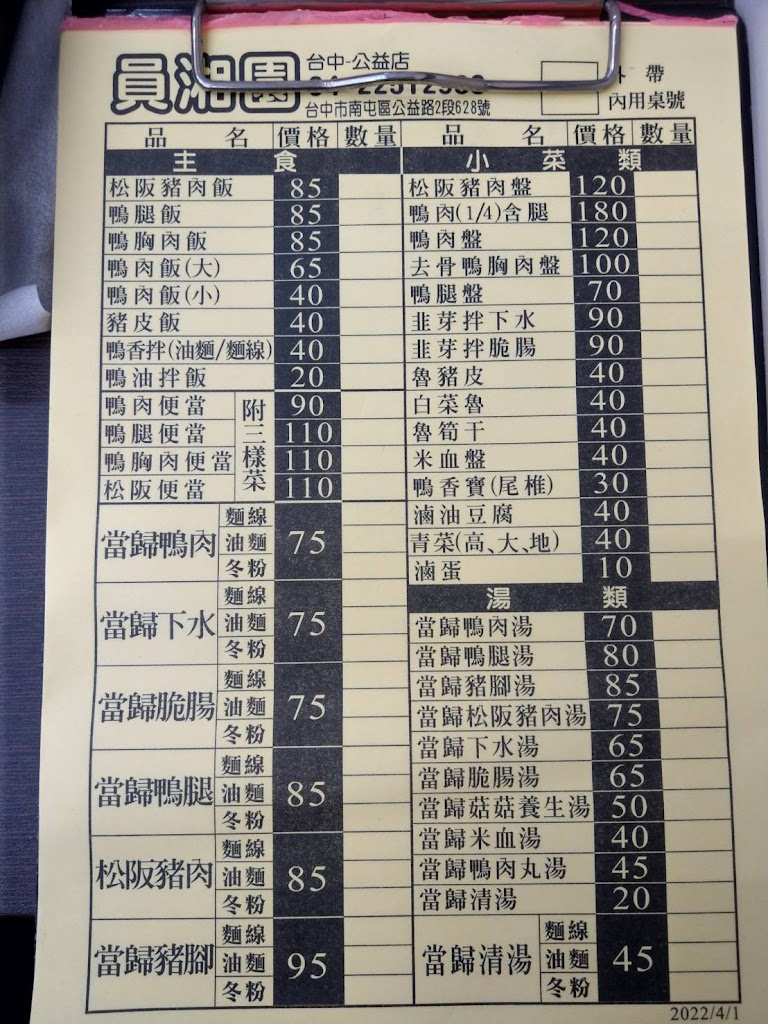 員湘園 台中-公益店
台中市南屯區公益路2段628號
外帶
內用桌號
品名 價格 數量
主食
松阪豬肉飯 85
鴨腿飯 85
鴨胸肉飯 85
鴨肉飯(大) 65
鴨肉飯(小) 40
豬皮飯 40
鴨香拌(油麵/麵線) 40
鴨油拌飯 20
鴨肉便當 90
鴨腿便當 110
鴨胸肉便當 110
松阪便當 110
附三樣菜
當歸鴨肉 麵線 油麵 冬粉 75
當歸下水 麵線 油麵 冬粉 75
當歸脆腸 麵線 油麵 冬粉 75
當歸鴨腿 麵線 油麵 冬粉 85
松阪豬肉 麵線 油麵 冬粉 85
當歸豬腳 麵線 油麵 冬粉 95
品名 價格 數量
小菜類
松阪豬肉盤 120
鴨肉(1/4)含腿 180
鴨肉盤 120
去骨鴨胸肉盤 100
鴨腿盤 70
韭芽拌下水 90
韭芽拌脆腸 90
魯豬皮 40
白菜魯 40
魯筍干 40
米血盤 40
鴨香寶(尾椎) 30
滷油豆腐 40
青菜(高、大、地) 40
滷蛋 10
湯類
當歸鴨肉湯 70
當歸鴨腿湯 80
當歸豬腳湯 85
當歸松阪豬肉湯 75
當歸下水湯 65
當歸脆腸湯 65
當歸菇菇養生湯 50
當歸米血湯 40
當歸鴨肉丸湯 45
當歸清湯 20
當歸清湯 麵線 油麵 冬粉 45
2022/4/1